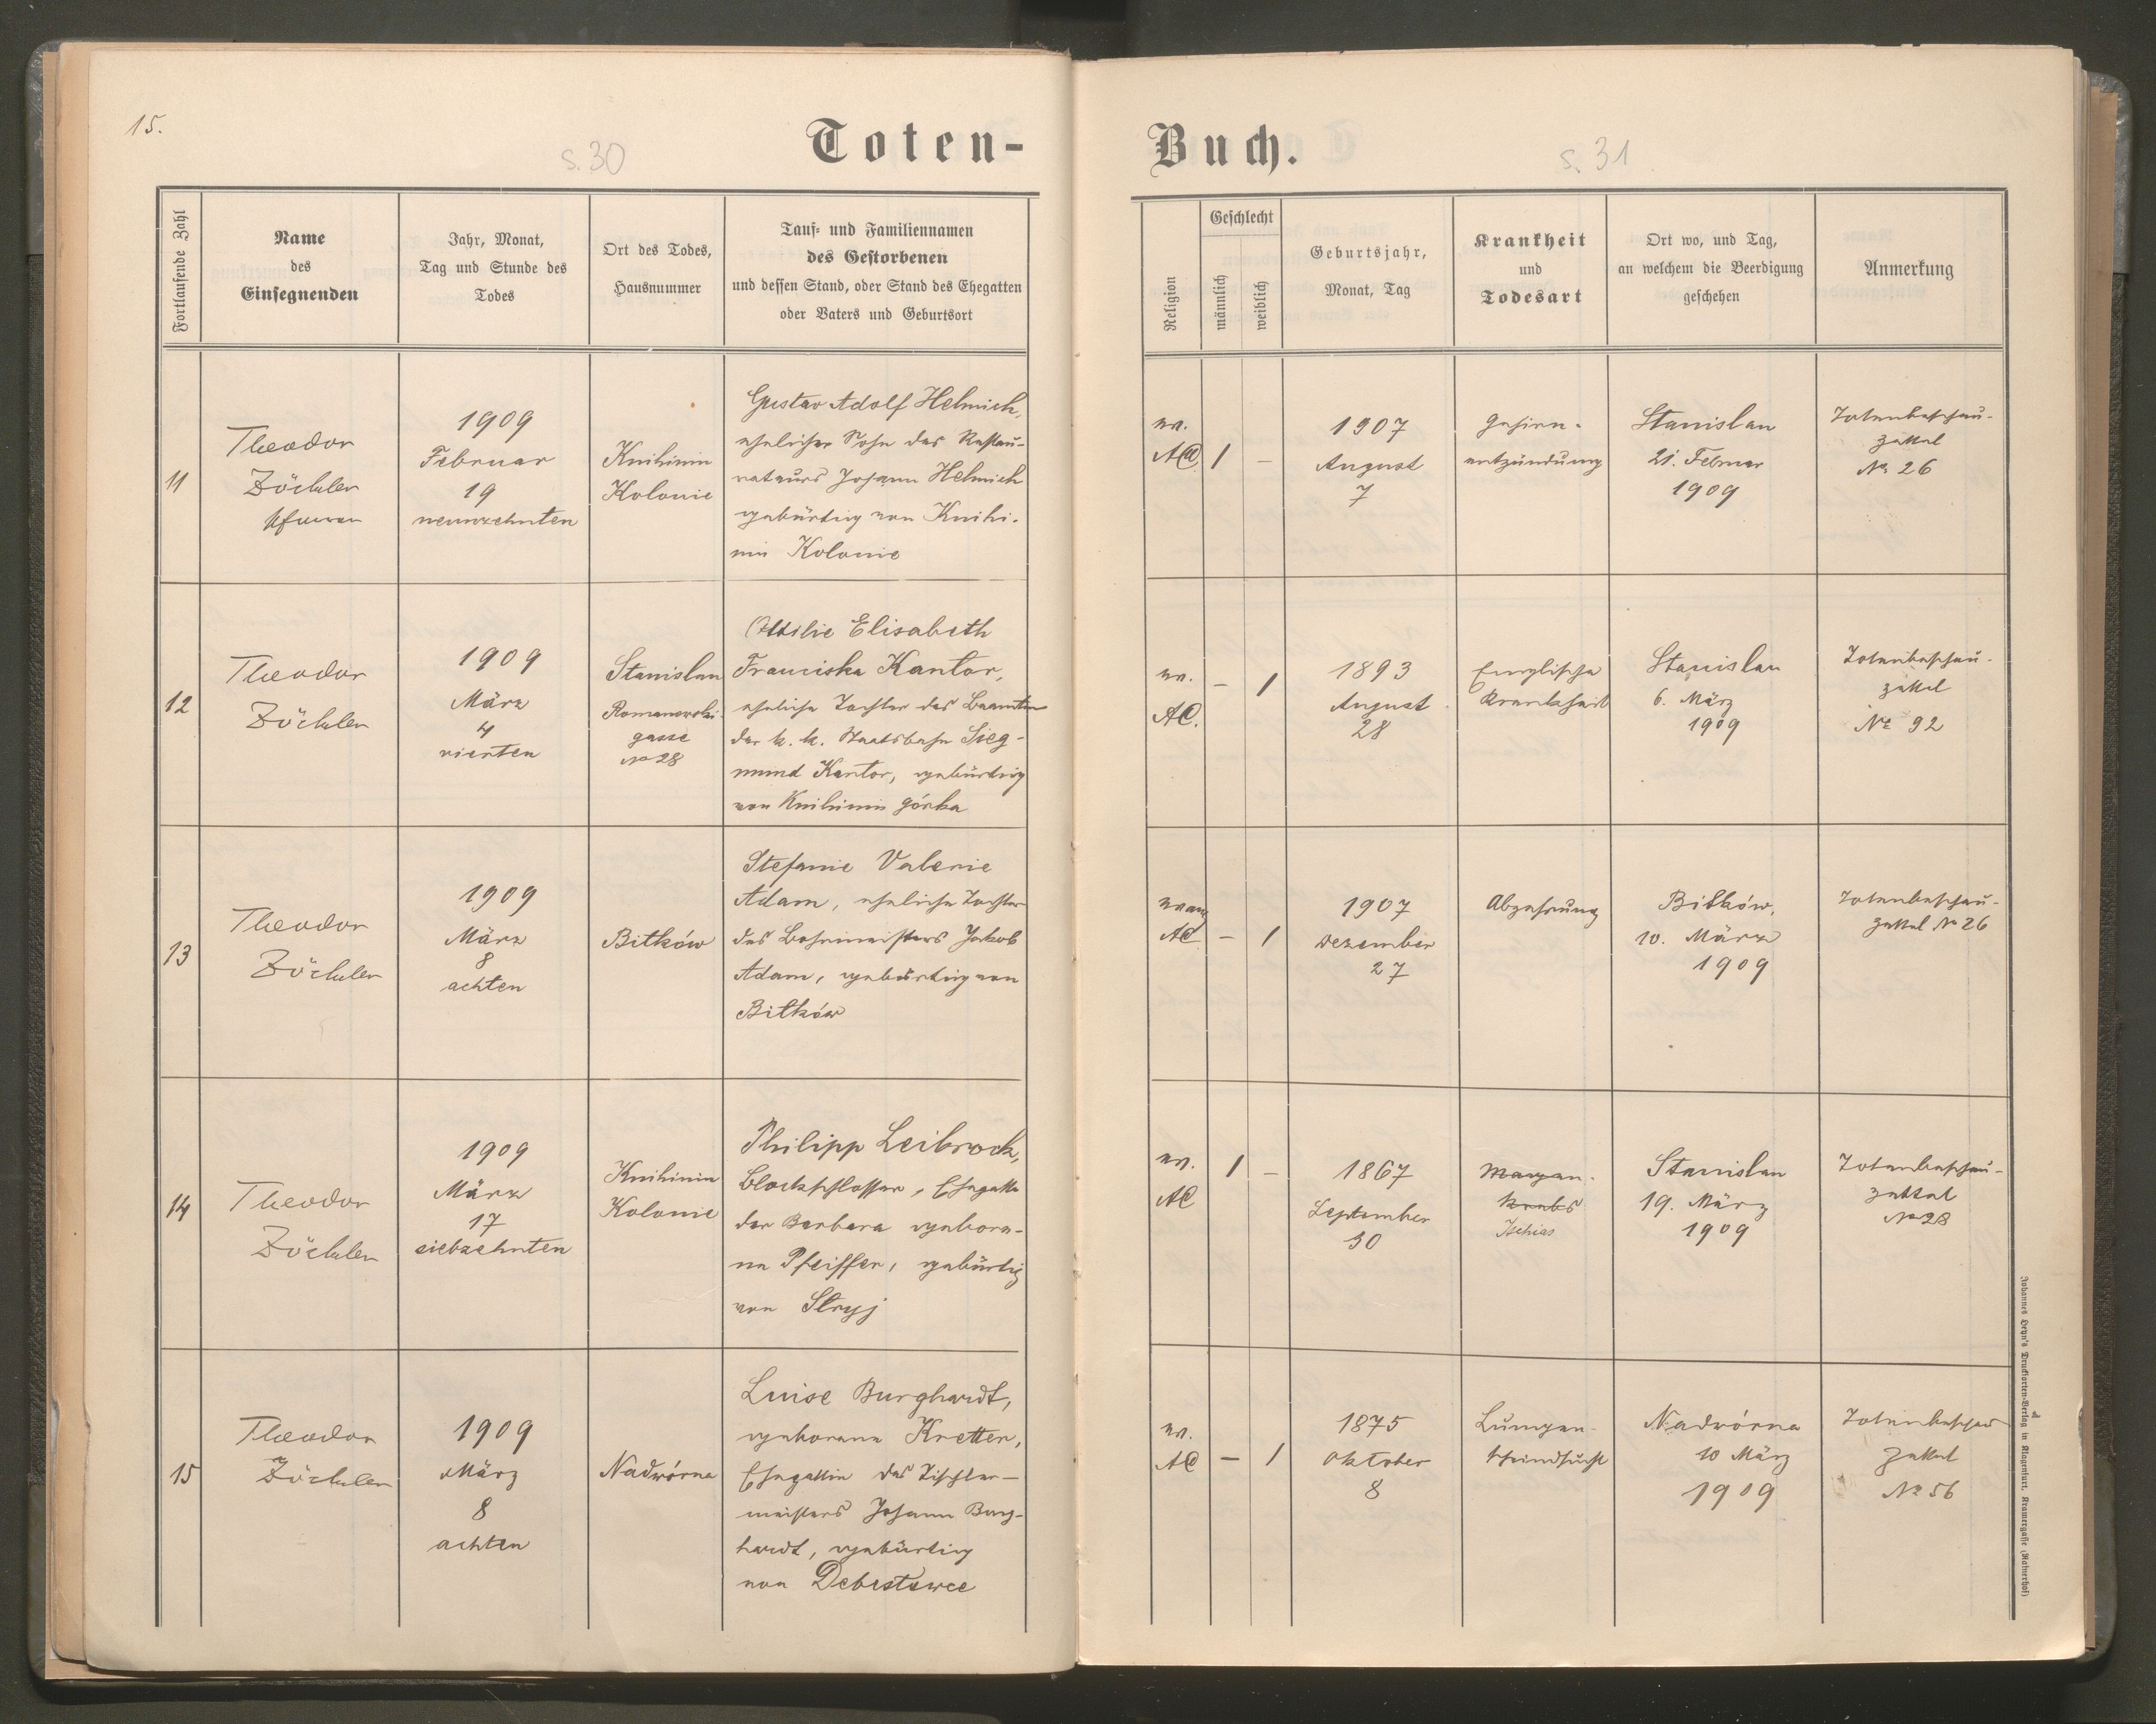 15.
s. 30
Toten-
Fortlaufende Zahl
Name
des
Einsegnenden
Jahr, Monat,
Tag und Stunde des
Todes
Ort des Todes,
Hausnummer
Tauf- und Familiennamen
des Gestorbenen
und dessen Stand, oder Stand des Ehegatten
oder Vaters und Geburtsort
11
Theodor
Zöckler
Pfarrer
1909
Februar
19
neunzehnten
Knihinin
Kolonie
Gustav Adolf Helmich,
ehelicher Sohn des Restau-
rateurs Johann Helmich
gebürtig von Knihi-
nin Kolonie
12
Theodor
Zöckler
1909
März
4
vierten
Stanislau
Romanowski
gasse
No 28
Ottilie Elisabeth
Franciska Kantor,
eheliche Tochter des Beamten
der k. k. Staatsbahn Sieg-
mund Kantor, gebürtig
von Knihinin górka
13
Theodor
Zöckler
1909
März
8
achten
Bitków
Stefanie Valerie
Adam, eheliche Tochter
des Bohrmeisters Jakob
Adam, gebürtig von
Bitków
14
Theodor
Zöckler
1909
März
17
siebzehnten
Knihinin
Kolonie
Philipp Leibrock,
Blockschlosser, Ehegatte
der Barbara gebore-
ne Pfeiffer, gebürtig
von Stryj
15
Theodor
Zöckler
1909
März
8
achten
Nadwórna
Luise Burghardt,
geborene Kretter,
Ehegattin des Tischler-
meisters Johann Burg-
hardt, gebürtig
von Debestawce
Buch.
s. 31
Religion
Geschlecht
männlich
weiblich
Geburtsjahr,
Monat, Tag
Krankheit
und
Todesart
Ort wo, und Tag,
an welchem die Beerdigung
geschehen
Anmerkung
ev.
AC
1
–
1907
August
7
Gehirn-
entzündung
Stanislau
21. Februar
1909
Totenbeschau-
zettel
No 26
ev.
AC.
–
1
1893
August
28
Englische
Krankheit
Stanislau
6. März
1909
Totenbeschau-
zettel
No 92
evang
AC
–
1
1907
Dezember
27
Abzehrung
Bitków,
10. März
1909
Totenbeschau-
zettel No 26
ev.
AC
1
–
1867
September
30
Magen-
krebs
Ischias
Stanislau
19. März
1909
Totenbeschau-
zettel
No 28
ev.
AC
–
1
1875
Oktober
8
Lungen-
schwindsucht
Nadwórna
10 März
1909
Totenbeschau
zettel
No 56
Johannes Heyn's Drucksorten-Verlag in Klagenfurt, Kramergasse (Rainerhof)